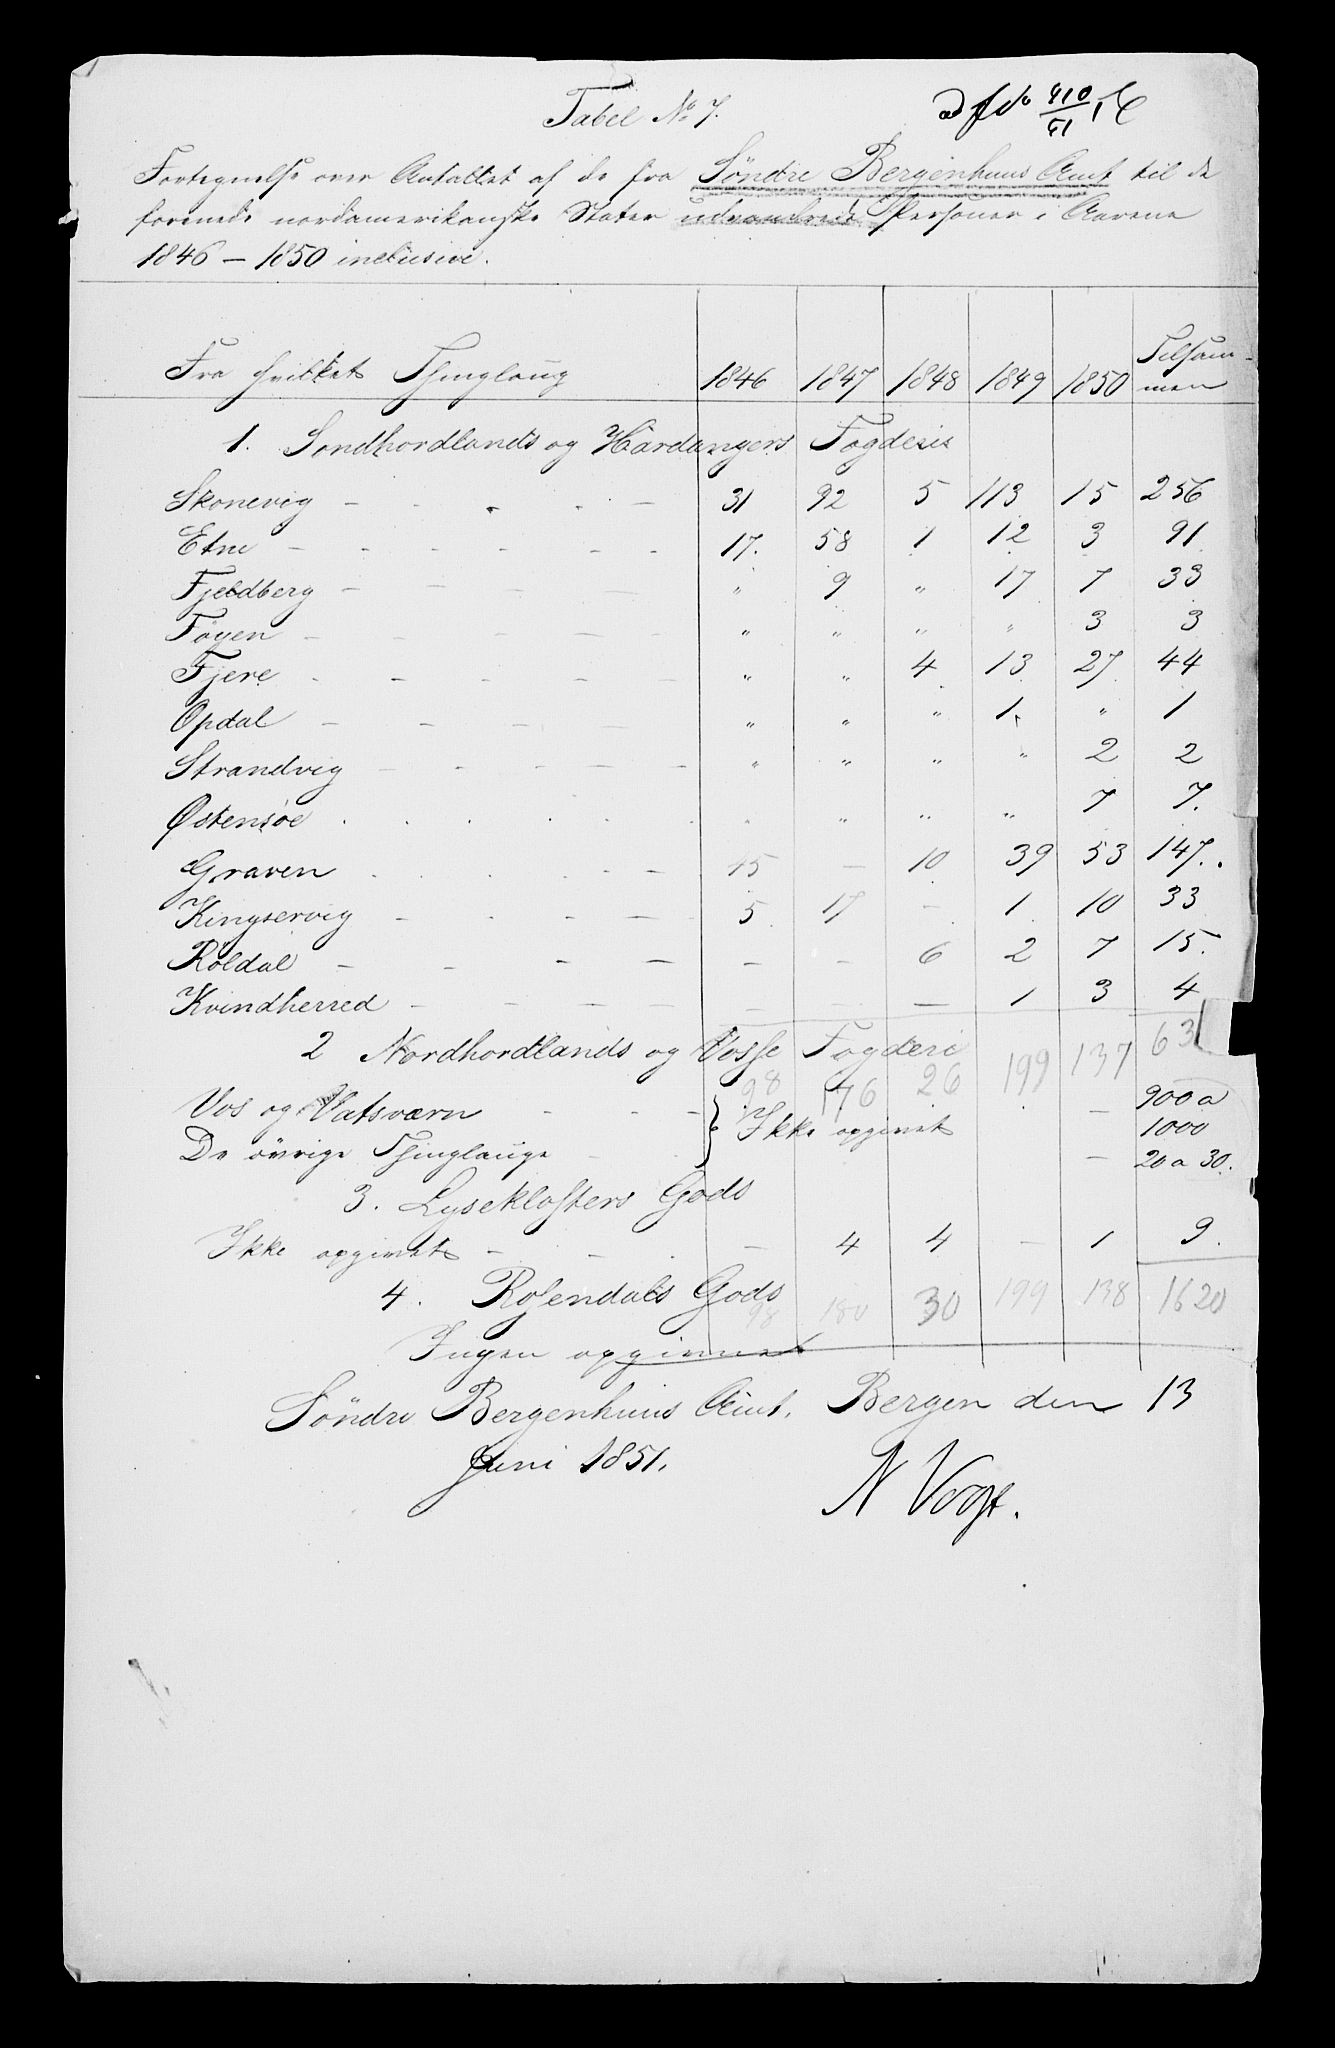 Tabel No 7.
ad J No 410/51 C
Fortegnelse over Antallet af de fra Söndre Bergenhuus Amt til de
forenede nordamerikanske Stater udvandrede Personer i Aarene
1846 – 1850 inclusive.
Fra hvilket Thinglaug 1846 1847 1848 1849 1850 Tilsam-
men
1. Sondhordlands og Hardangers Fogderie
Skonevig - - - - - 31 92 5 113 15 256
Etne - - - - - - 17. 58 1 12 3 91
Fjeldberg - - - - " 9 " 17 7 33
Föyen - - - - " " " " 3 3
Fjere - - - - - " " 4 13 27 44
Opdal - - - - " " " 1. " 1
Strandvig - - - - - " " " " 2 2
Østensöe . . . . . " " " " 7 7.
Graven . . - - - 45 - 10 39 53 147.
Kingservig - - - - 5 17 - 1 10 33
Röldal - - - - - - 6 2 7 15.
Kvindherred - - - - - - 1 3 4
2 Nordhordlands og Vosse Fogderi
98 176 26 199 137 631
Vos og Vatsværn - - - - 900 a
1000
} Ikke opgivet
De övrige Thinglauge - - - 20 a 30.
3. Lyseklosters Gods
Ikke opgivet - - . - 4 4 - 1 9.
4. Rosendals Gods
98 180 30 199 138 1620
Ingen opgivet
Söndre Bergenhuus Amt, Bergen den 13
Juni 1851.
N Vogt.